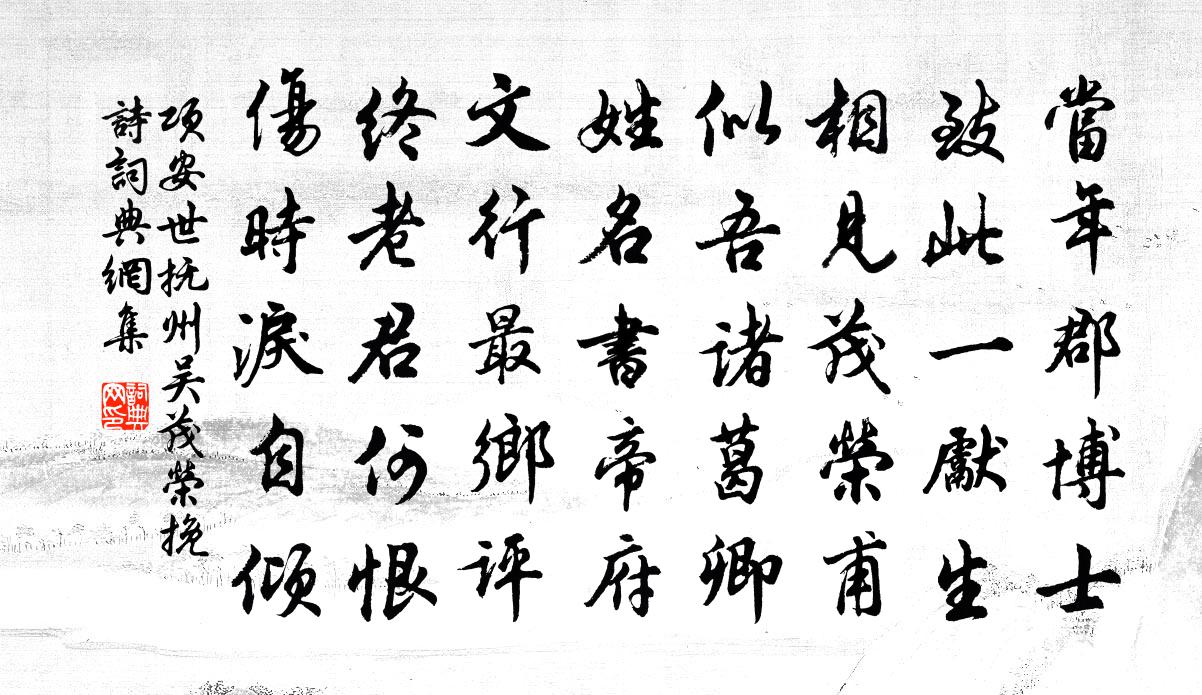 當年郡博士
致此一獻生
相見茂榮甫
似吾諸葛卿
姓名書帝府
文行最鄉評
終老君何恨
傷時淚自傾
項安世撫州吴茂榮挽
詩詞典網集
詞典网印